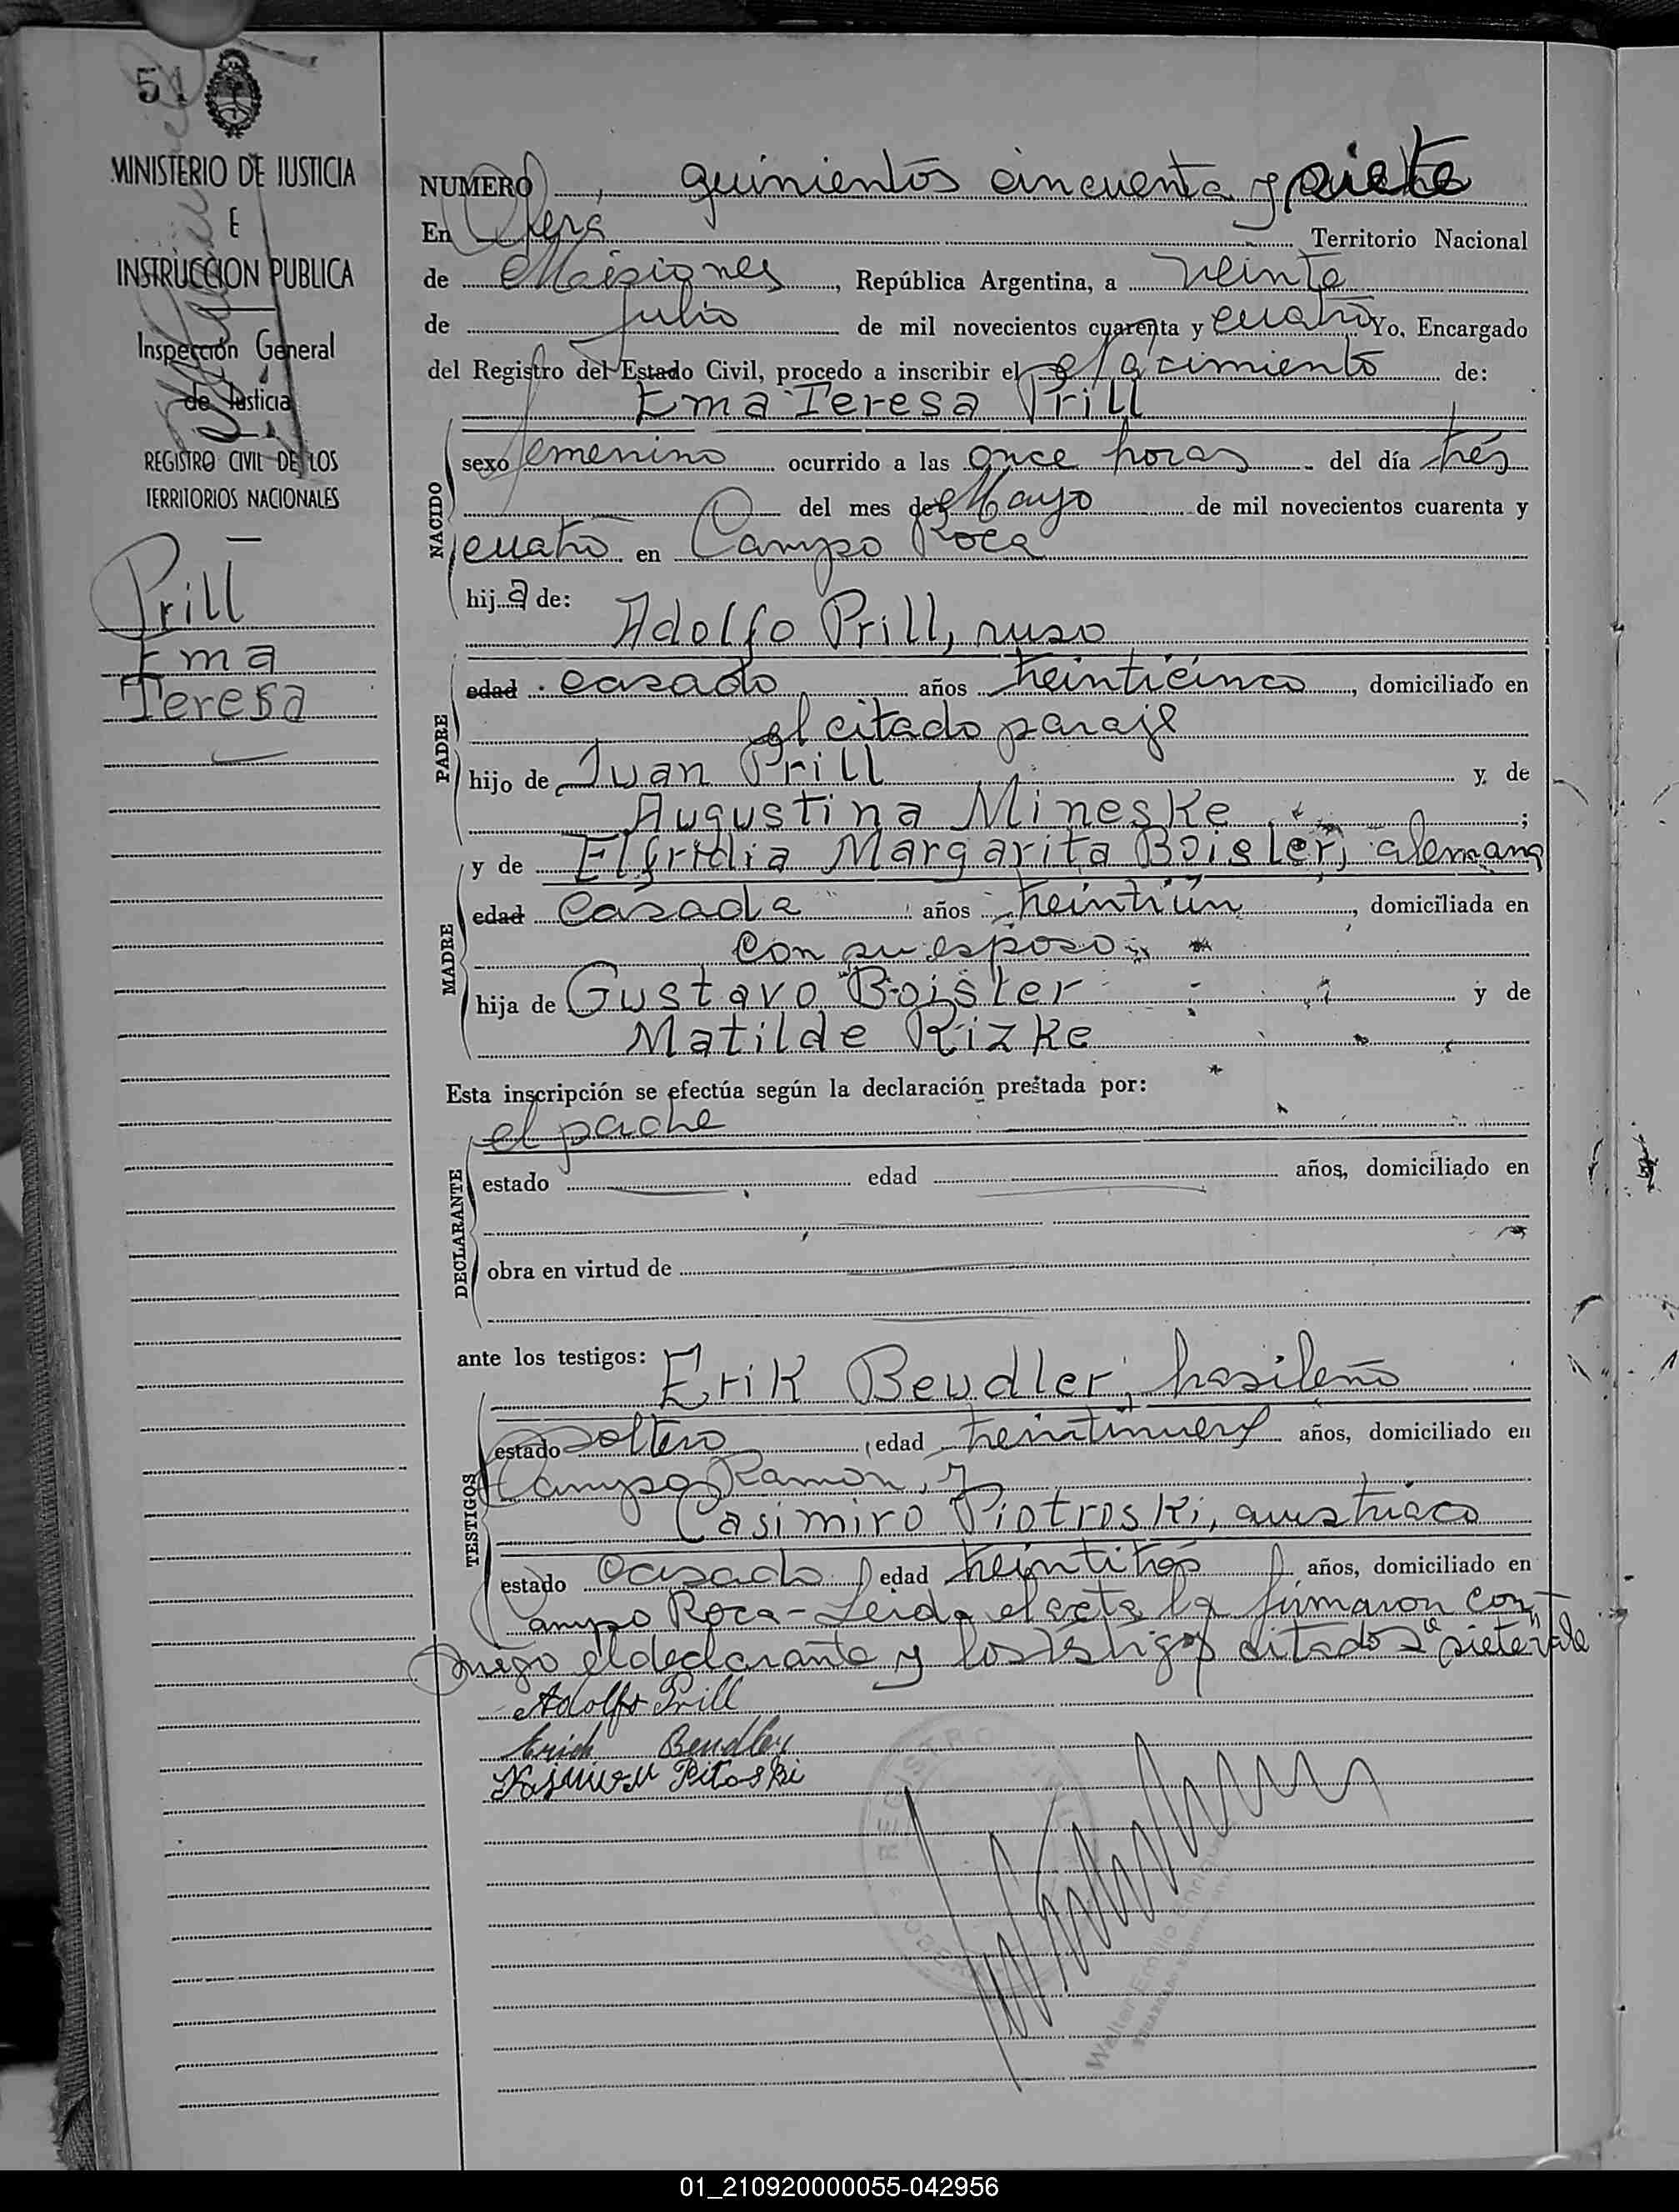 51
MINISTERIO DE JUSTICIA
E
INSTRUCCION PUBLICA
Inspección General
de Justicia
REGISTRO CIVIL DE LOS
TERRITORIOS NACIONALES
Prill
Ema
Teresa
NUMERO quinientos cincuenta y siete
En Oberá Territorio Nacional
de Misiones, República Argentina, a veinte
de julio de mil novecientos cuarenta y cuatro Yo, Encargado
del Registro del Estado Civil, procedo a inscribir el nacimiento de:
Ema Teresa Prill
NACIDO
sexo femenino ocurrido a las once horas del día tres
del mes de Mayo de mil novecientos cuarenta y
cuatro en Campo Roca
hija de:
PADRE
Adolfo Prill, ruso
edad casado años treinticinco, domiciliado en
el citado paraje
hijo de Juan Prill y de
Augustina Mineske;
MADRE
y de Elfridia Margarita Boisler, alemana
edad casada años treintiún, domiciliada en
con su esposo
hija de Gustavo Boisler y de
Matilde Rizke
Esta inscripción se efectúa según la declaración prestada por:
DECLARANTE
el padre
estado edad años, domiciliado en
obra en virtud de
ante los testigos:
TESTIGOS
Erik Beudler, brasileño
estado soltero, edad treintinueve años, domiciliado en
Campo Ramon, y
Casimiro Piotroski, austriaco
estado casado, edad treintitrés años, domiciliado en
Campo Roca - Leida el acta la firmaron con
migo el declarante y los testigos citados "siete" vale
Adolfo Prill
Erich Bendler
Pitoski
REGISTRO
Walter Emilio Enrique